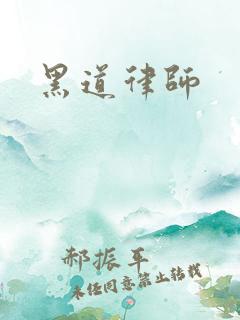 黑道律師
郝振平
未经同意禁止转载